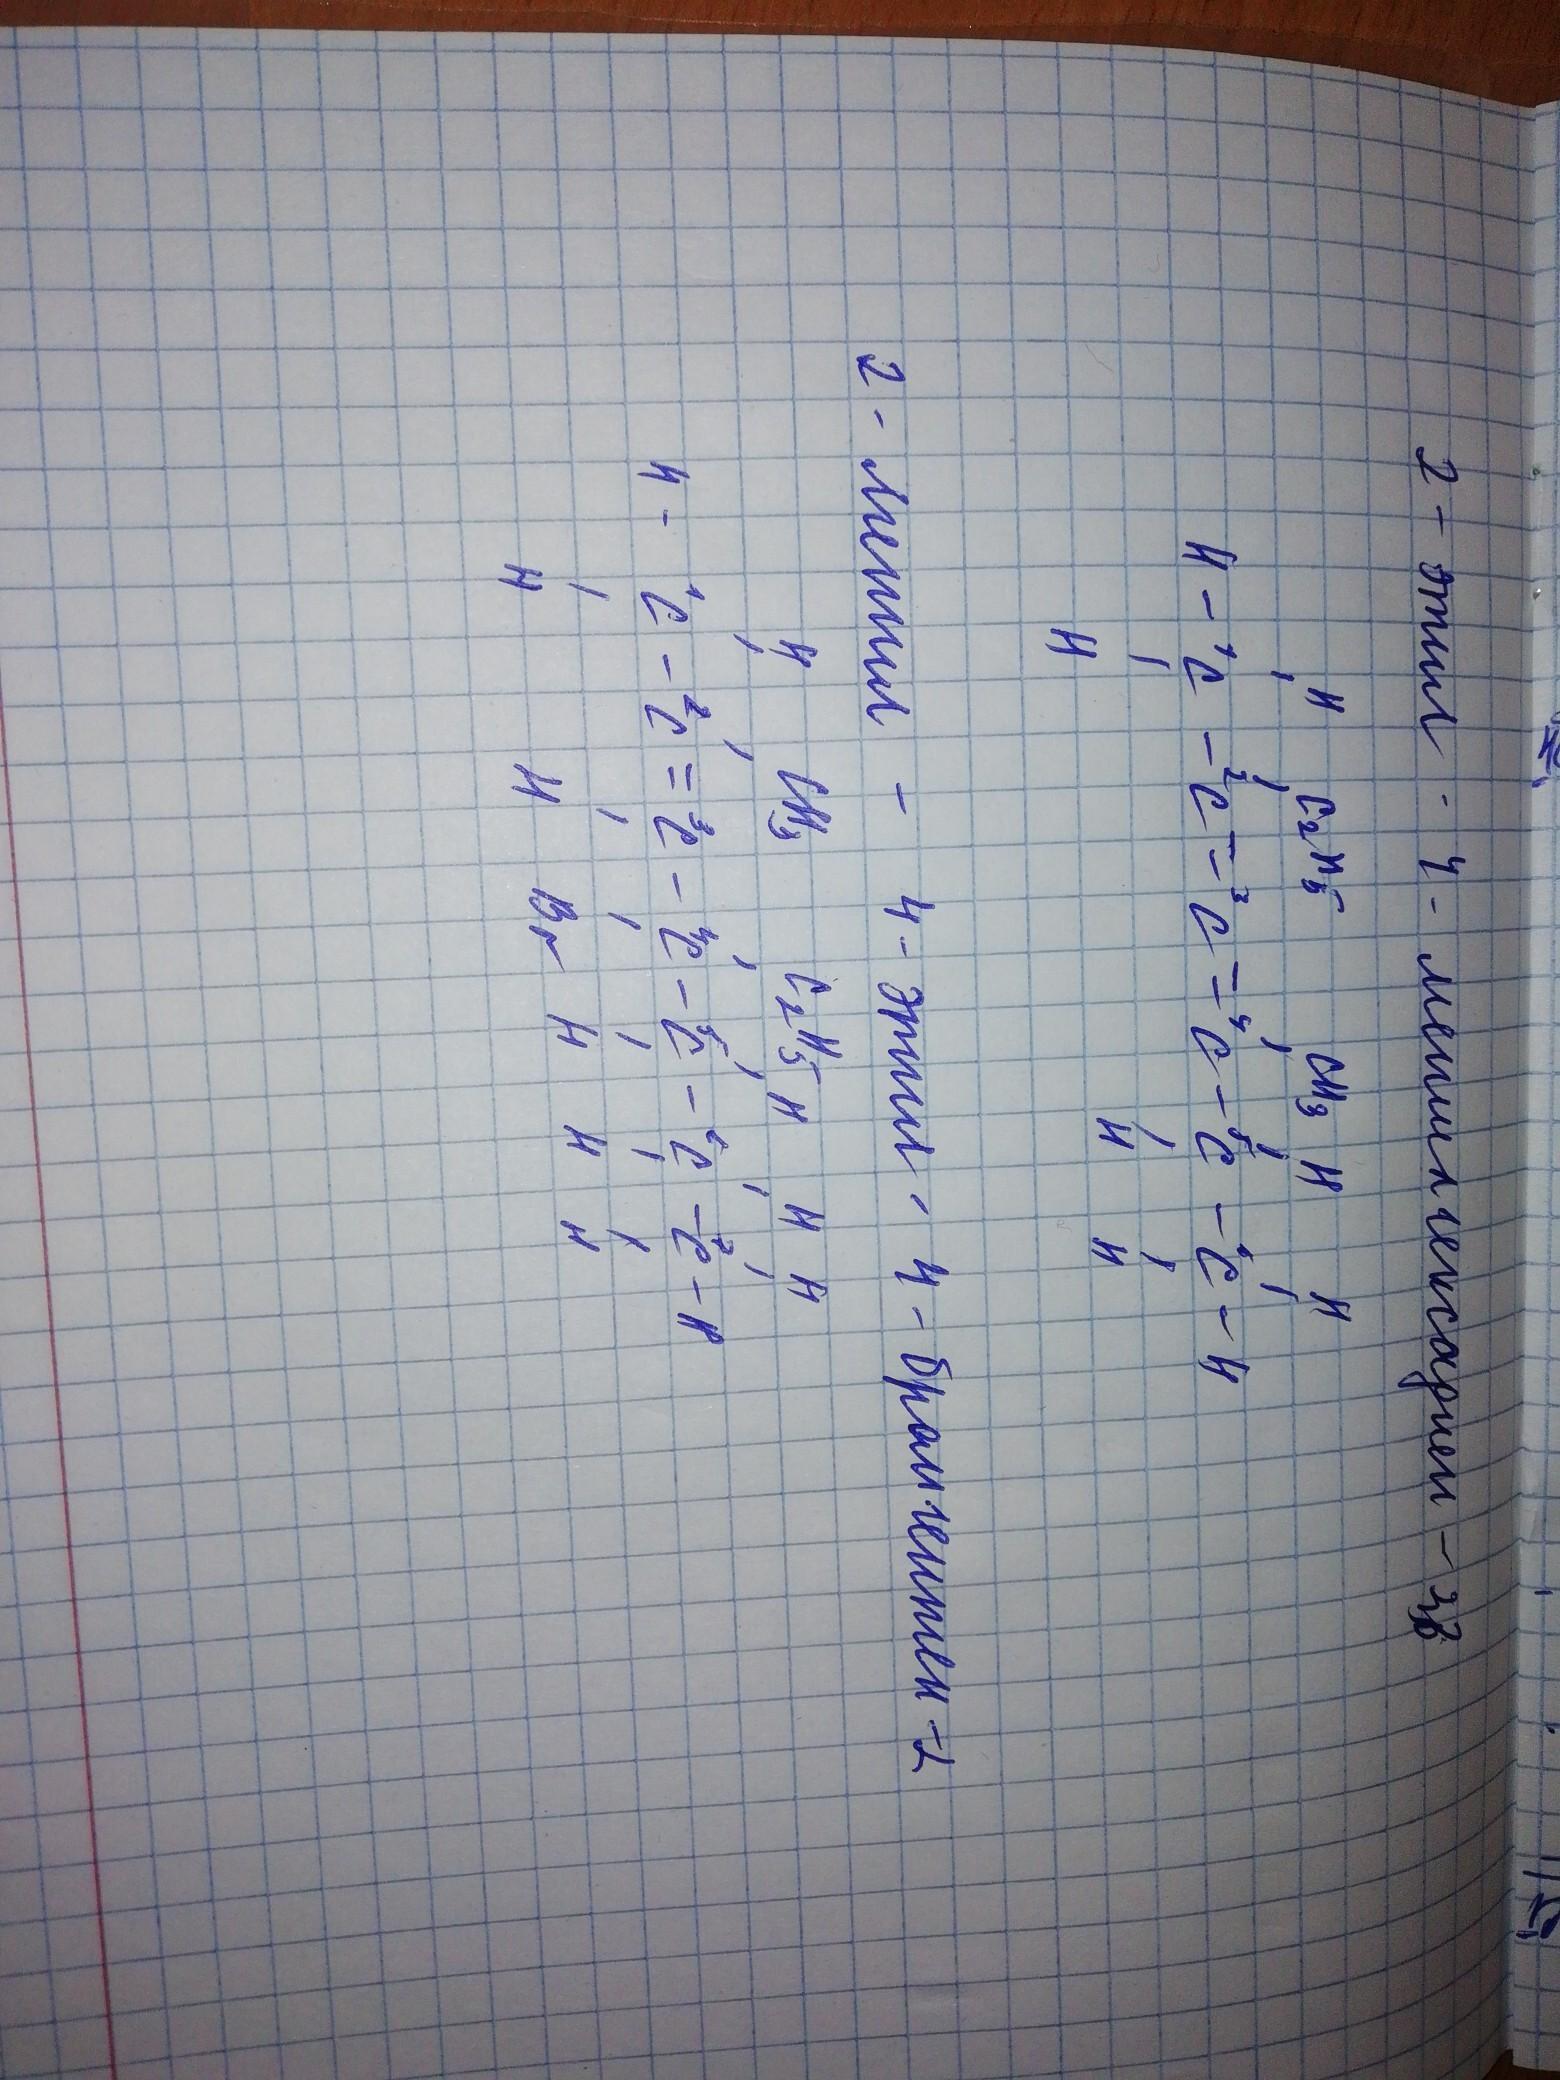 2 - этил - 4 - метилгексадиен - 2,3
H C₂H₅ CH₃ H H
H - ¹C - ²C = ³C = ⁴C - ⁵C - ⁶C - H
H H H
2 - Метил - 4 - этил - 4 - бромгептен - 2
H CH₃ C₂H₅ H H H
H - ¹C - ²C = ³C - ⁴C - ⁵C - ⁶C - ⁷C - H
H H Br H H H